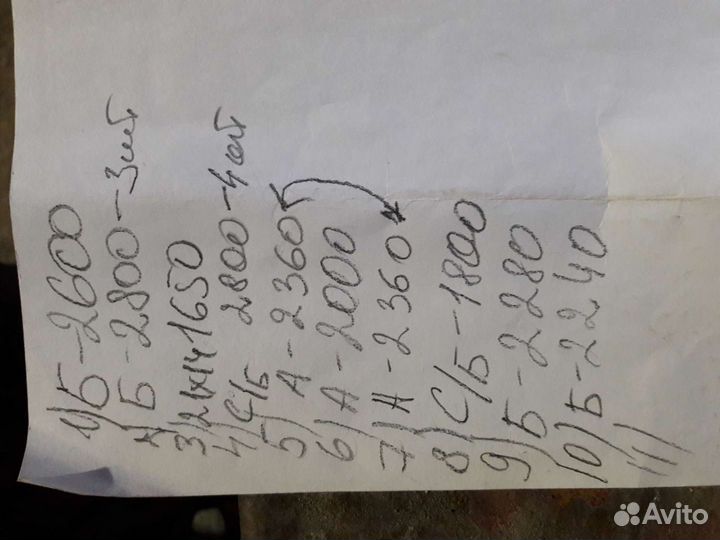 1) Б-2600
2) Б-2800-3шт
3) 21х14 1650
4) С/Б 2800-4шт
5) А-2360
6) А-2000
7) А-2360
8) С/Б-1800
9) Б-2280
10) Б-2240
11)
Avito